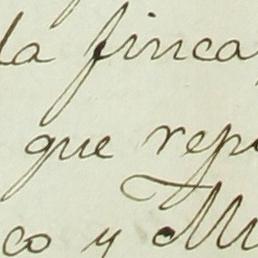 la finca
que rep
co y Mu